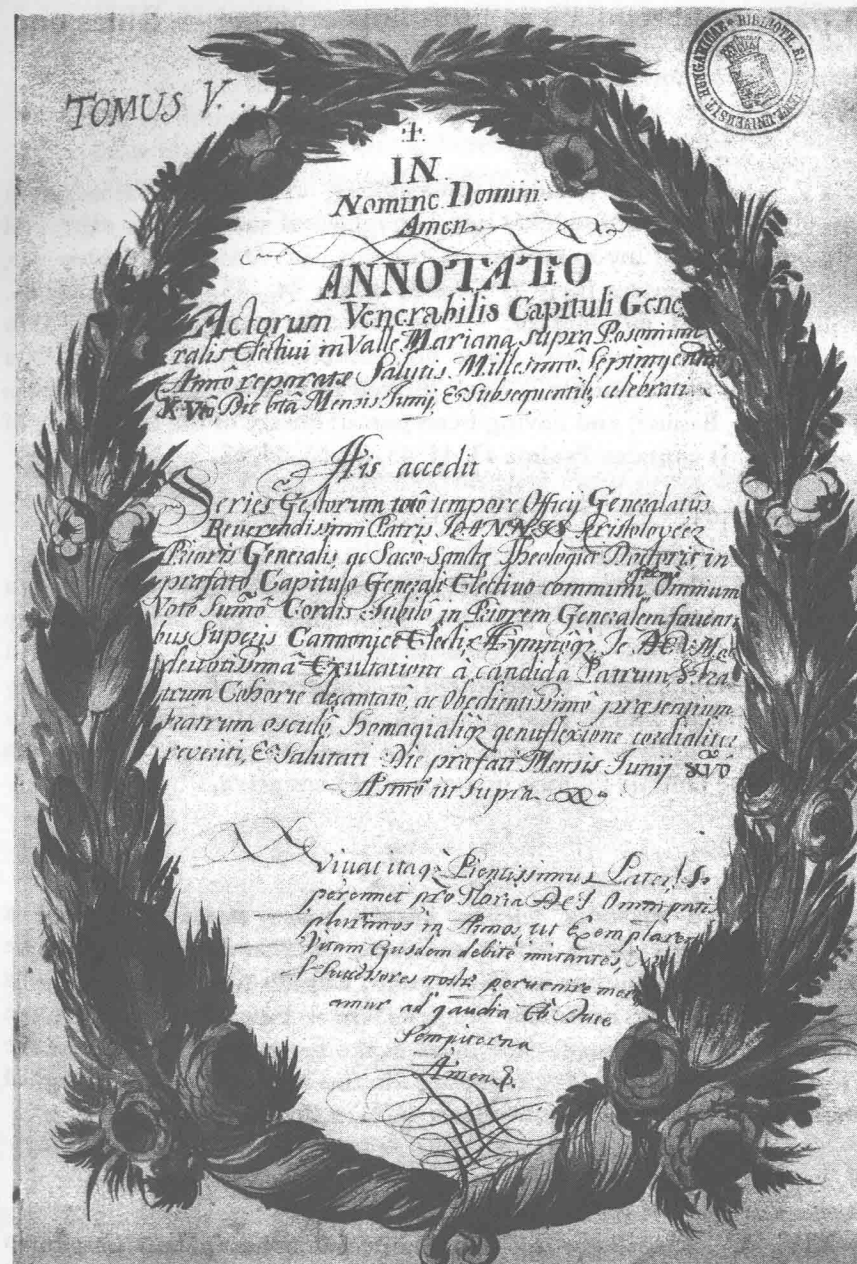 TOMUS V.
IN
Nomine Domini
Amen
ANNOTATIO
Actorum Venerabilis Capituli Gene
ralis Electivi in Valle Mariana supra Posonium
Annô reparatæ Salutis Millesimô Septingentesimô
Die Mensis Junij, & Subsequentib, celebrati
His accedit
Series Gestorum totô tempore Officij Generalatûs
Reverendissimi Patris JOANNIS Kristolovecz
Prioris Generalis, ac Sacro-Sanctæ Theologiæ Doctoris in
præfato Capitulo Generale Electivo communi Omnium
Votô Sumô Cordis Jubilô in Priorem Generalem faventi
bus Superis Cannonicè Electi, Hymnôq, Te DEUM
Exultatione à candida Patrum, & Fra
trum Cohorte decantatô, ac Obedientissimô præsentium
Fratrum osculô, Homagialiq, genuflexione cordialiter
reveriti, & Salutati Die præfati Mensis Junij
Annô ut Supra
Vivat itaq, Pientissimus Pater,
perennet pro Gloria DEI Omnipotis
plurimos in Annos, ut Exemplarem
Vitam Ejusdem debitè imitantes,
Successores nostri pervenire mere
amur ad gaudia Duce
Sempiterna
Amen